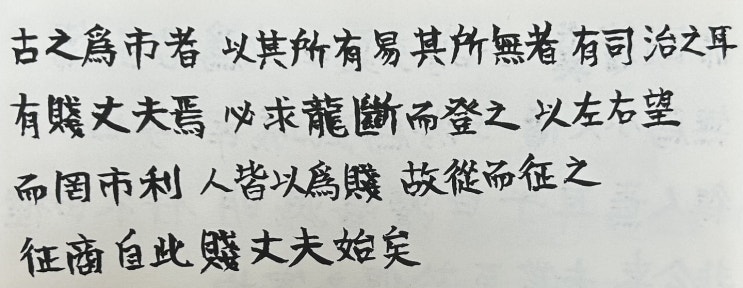 古之爲市者 以其所有易其所無者 有司治之耳
有賤丈夫焉 必求龍斷而登之 以左右望
而罔市利 人皆以爲賤 故從而征之
征商自此賤丈夫始矣